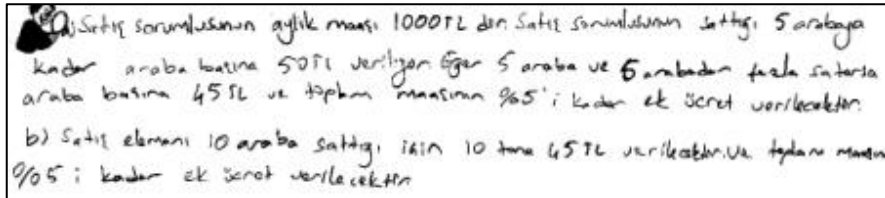 a) Satış sorumlusunun aylık maaşı 1000TL dir. Satış sorumlusunun sattığı 5 arabaya
kadar araba başına 50TL veriliyor. Eğer 5 araba ve 5 arabadan fazla satarsa
araba başına 45TL ve toplam maaşının %5'i kadar ek ücret verilecektir.
b) Satış elemanı 10 araba sattığı için 10 tane 45TL verilecektir. Ve toplam maaşın
%05 i kadar ek ücret verilecektir